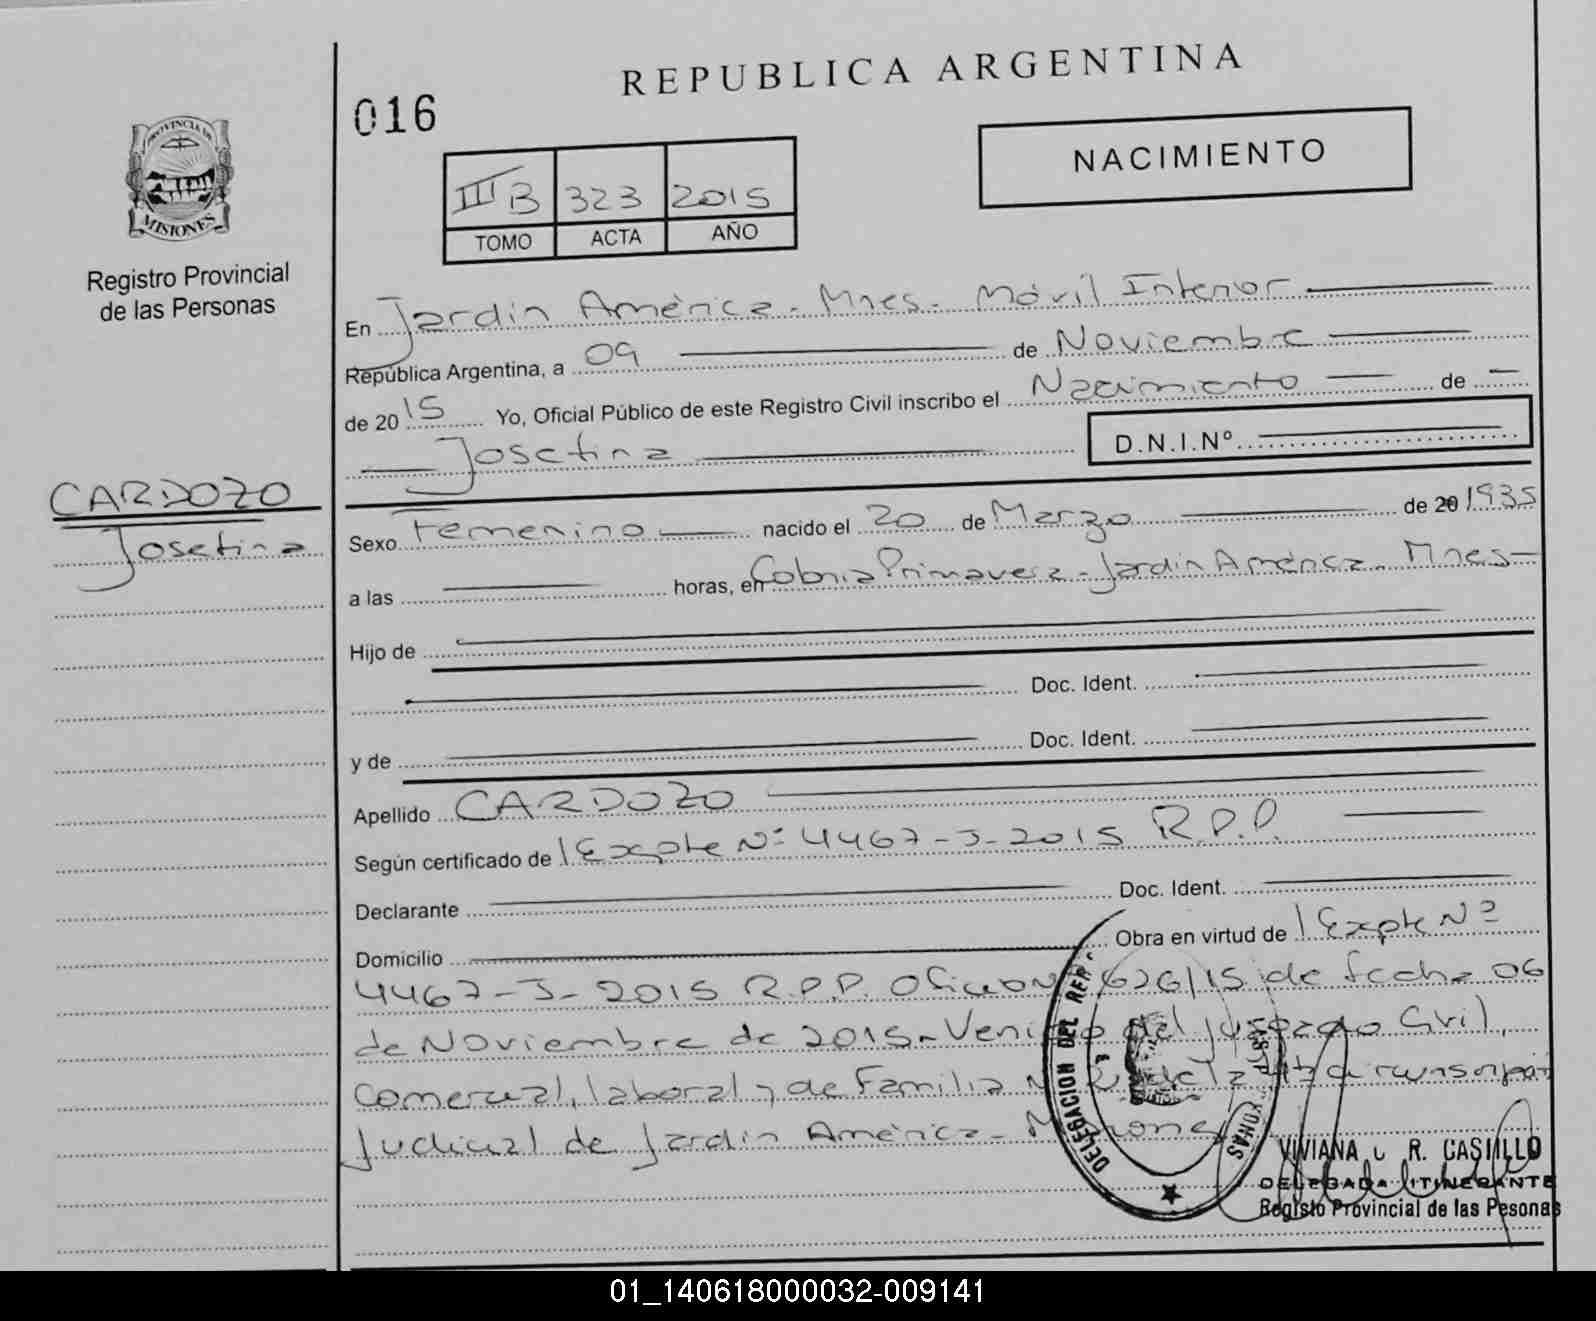 REPUBLICA ARGENTINA
016
NACIMIENTO
III B 323 2015
TOMO ACTA AÑO
PROVINCIA DE
MISIONES
Registro Provincial
de las Personas
En Jardín América - Mnes - Móvil Interior
República Argentina, a 09 de Noviembre
de 2015 Yo, Oficial Público de este Registro Civil inscribo el Nacimiento de
Josefina D.N.I.Nº
CARDOZO
Josefina
Sexo Femenino nacido el 20 de Marzo de 20 1935
a las horas, en Colonia Primavera - Jardín América - Mnes
Hijo de
Doc. Ident.
y de Doc. Ident.
Apellido CARDOZO
Según certificado de Expte Nº 4467-J-2015 R.P.P.
Declarante Doc. Ident.
Domicilio Obra en virtud de Expte Nº
4467-J-2015 R.P.P. Oficio Nº 626/15 de fecha 06
de Noviembre de 2015 - Venido del Juzgado Civil,
Comercial, laboral y de Familia de la circunscripción
Judicial de Jardín América - Misiones
DELEGACION DEL REG
VIVIANA R. CASTILLO
DELEGADA ITINERANTE
Registo Provincial de las Pesonas
01_140618000032-009141